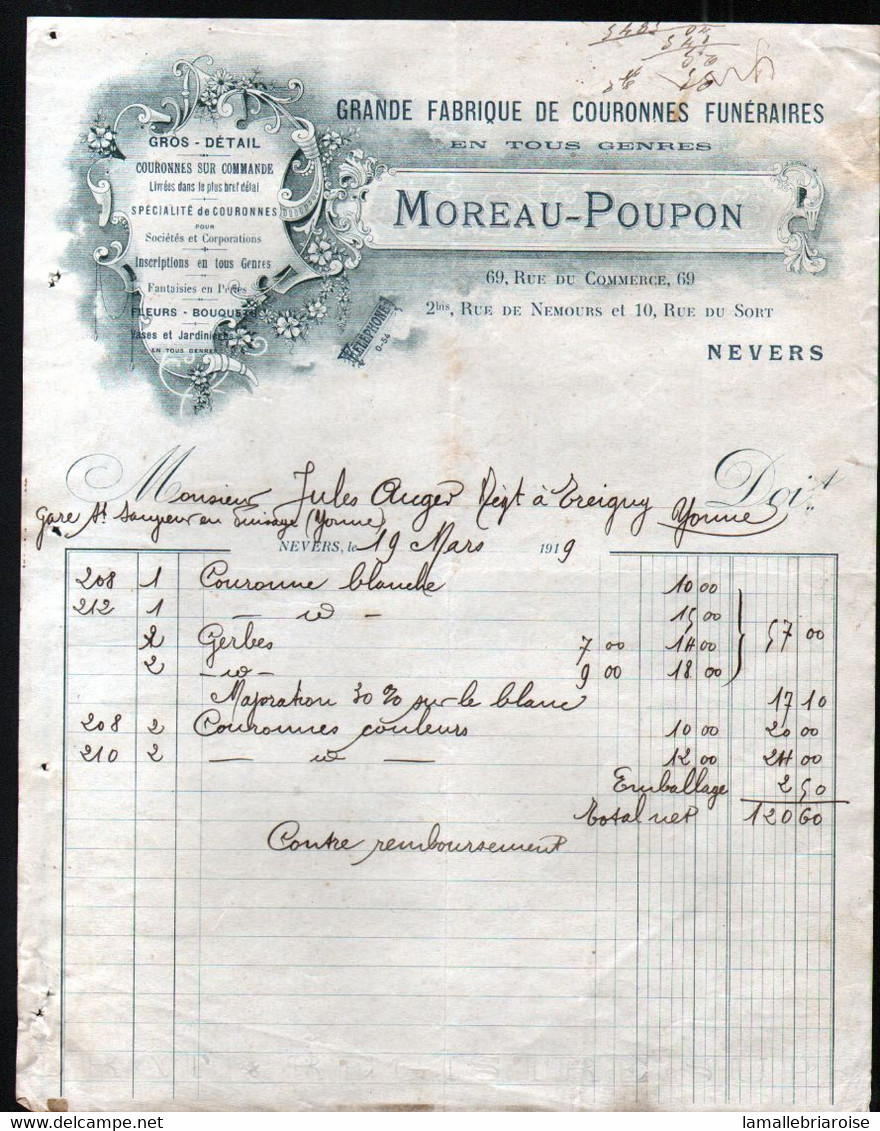 GRANDE FABRIQUE DE COURONNES FUNÉRAIRES
EN TOUS GENRES
MOREAU-POUPON
69, RUE DU COMMERCE, 69
2bis, RUE DE NEMOURS et 10, RUE DU SORT
NEVERS
GROS - DÉTAIL
COURONNES SUR COMMANDE
Livrées dans le plus bref délai
SPÉCIALITÉ de COURONNES
POUR
Sociétés et Corporations
Inscriptions en tous Genres
Fantaisies en Perles
FLEURS - BOUQUETS
Vases et Jardinières
EN TOUS GENRES
TÉLÉPHONE
0-54
Monsieur Jules Auger Négt à Treigny Yonne Doit
Gare St Sauveur en Puisaye (Yonne)
NEVERS, le 19 Mars 1919
208 1 Couronne blanche 10 00
212 1 — d° — 15 00
2 Gerbes 7 00 14 00 57 00
2 — d° — 9 00 18 00
Majoration 30 % sur le blanc 17 10
208 2 Couronnes couleurs 10 00 20 00
210 2 — d° — 12 00 24 00
Emballage 2 50
Total net 120 60
Contre remboursement
delcampe.net
lamallebriaroise